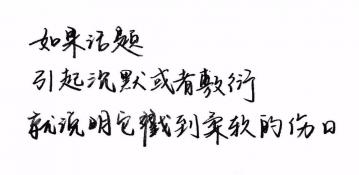 如果话题
引起沉默或者敷衍
就说明它戳到柔软的伤口